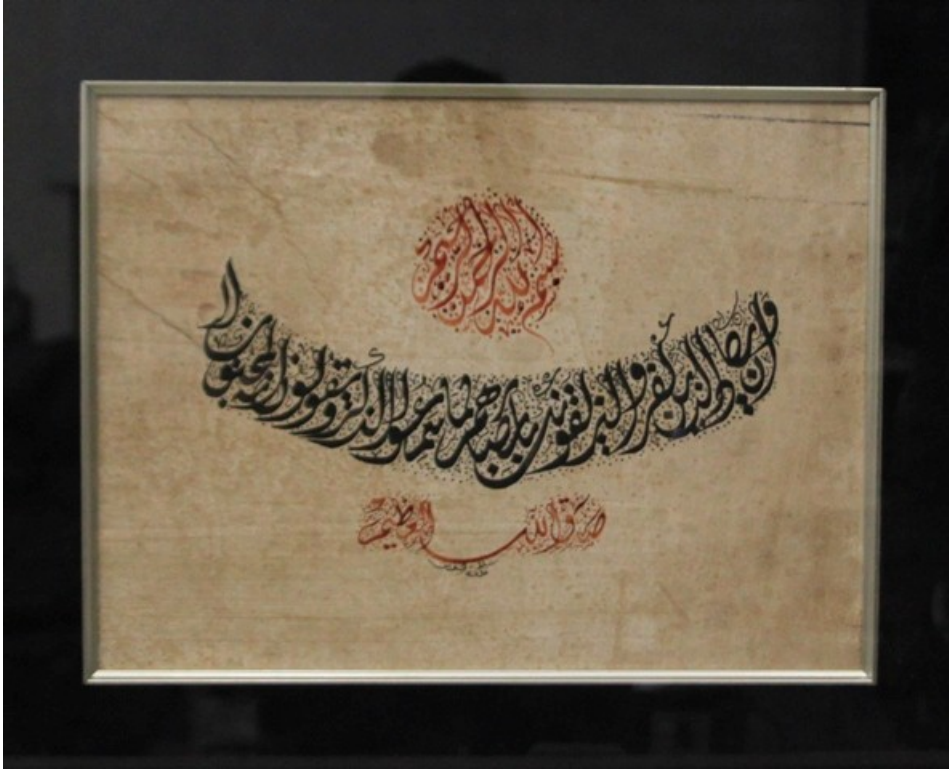 بسم الله الرحمن الرحيم
وان يكاد الذين كفروا ليزلقونك بابصارهم لما سمعوا الذكر ويقولون انه لمجنون
صدق الله العظيم